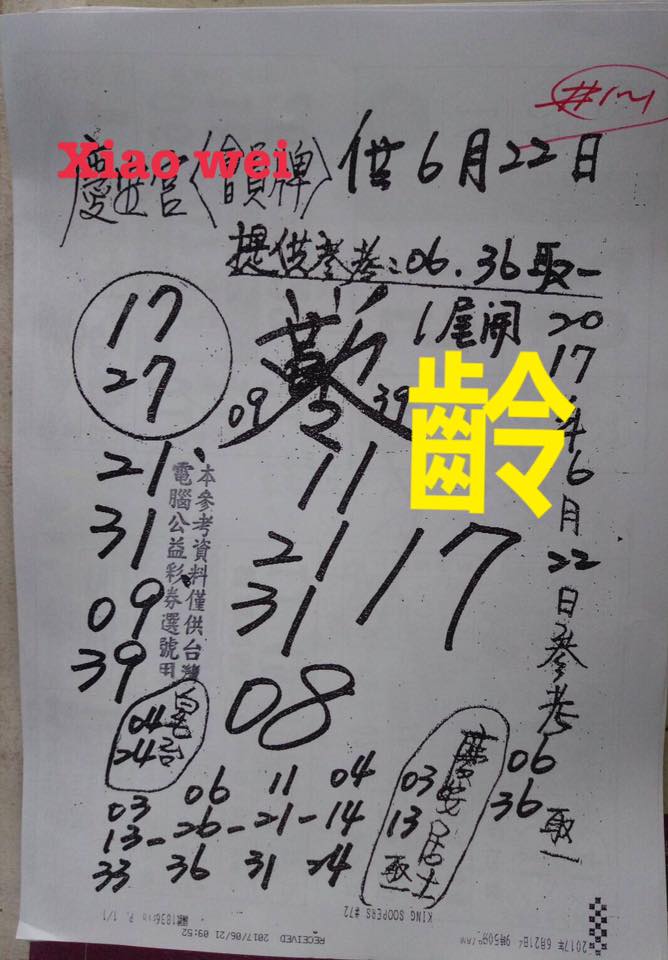 #121
Xiao wei
(會員牌) 供6月22日
提供參考:06.36取一
17
27
1尾開
09 2 39
齡
2017年6月22日參考
21
31
09
39
11
21
31
17
08
本參考資料僅供台灣
電腦公益彩券選號用
04
24
03 06 11 04
13-26-21-14
33 36 31 24
慶安居士
03
13
取一
06
36
取一
KING SOOPERS #72
RECEIVED 2017/06/21 09:52
P. 1/1
2017年 6月21日 9時50分